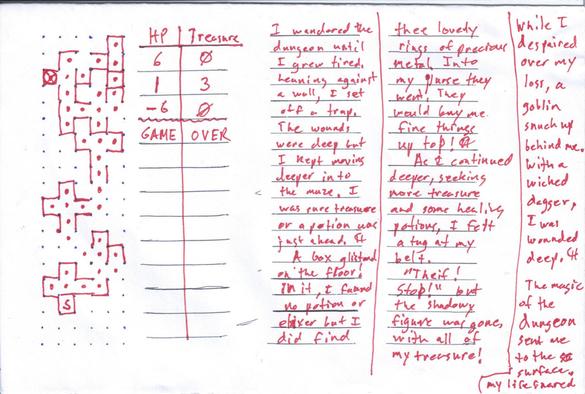 HP Treasure
6 0
1 3
-6 0
GAME OVER
S
I wandered the
dungeon until
I grew tired.
Leaning against
a wall, I set
off a trap.
The wounds
were deep but
I kept moving
deeper into
the maze. I
was sure treasure
or a potion was
just ahead.
A box glistened
on the floor!
In it, I found
no potion or
elixer but I
did find
thee lovely
rings of precious
metal. Into
my purse they
went. They
would buy me
fine things
up top!
As I continued
deeper, seeking
more treasure
and some healing
potions, I felt
a tug at my
belt.
"Theif!
Stop!" but
the shadowy
figure was gone,
with all of
my treasure!
While I
despaired
over my
loss, a
goblin
snuck up
behind me.
With a
wicked
dagger,
I was
wounded
deep.
The magic
of the
dungeon
sent me
to the
surface,
my life spared